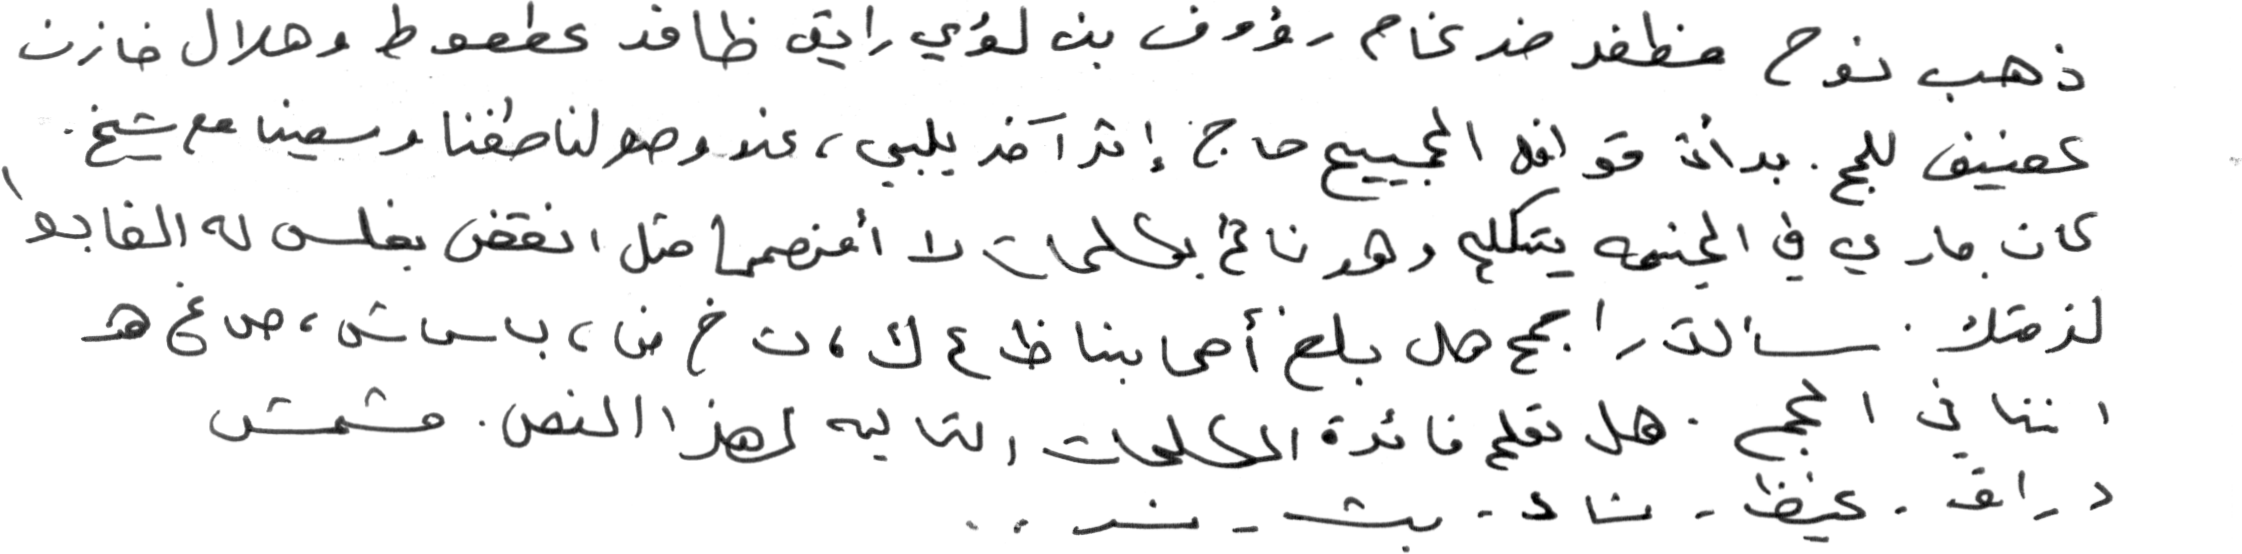 ذهب نوح مظفر ضرغام رؤوف بن لؤي رايق ظافر عطعوط وهلال خازن
عفيف للحج. بدأت قوافل الحجيج حاج إثر آخر يلبي، عند وصولنا طفنا وسعينا مع شيخ.
كان جاري في الخيمه يتكلم وهو نائم بكلمات لا أفهمها مثل انقض بغلس له الغابوا
لذمتك. سألت راجح هل بلغ أصحابنا ظ ع ك، ث خ ض، ب س ش، ص غ هـ
اننا في الحج. هل تعلم فائدة الكلمات التاليه لهذا النص. مشمش
دراق. غيظ. شاء. بث.